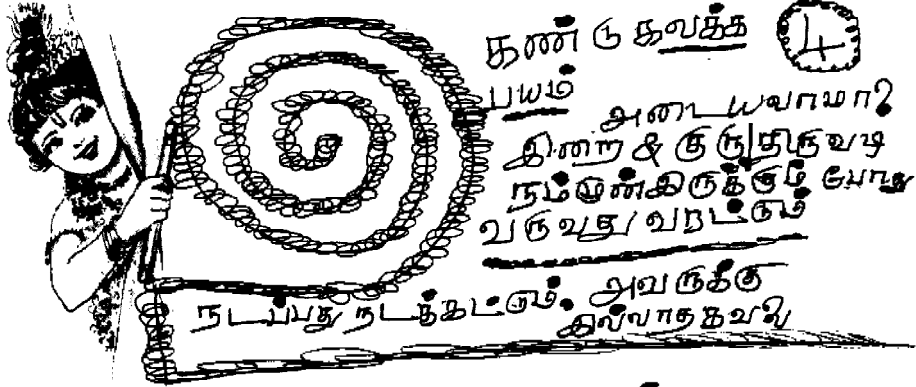 கண்டு கவக்க
4
பயம்
அடையலாமா?
இறை & குரு திருவடி
நம்முன் இருக்கும் போது
வருவது வரட்டும்
நடப்பது நடக்கட்டும். அவருக்கு
இல்லாத கவலை